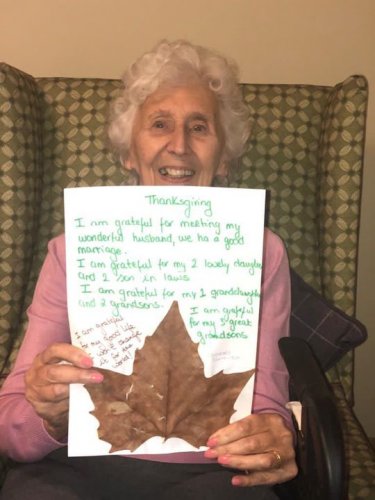 Thanksgiving
I am grateful for meeting my
wonderful husband, we ha a good
marriage.
I am grateful for my 2 lovely daughters
and 2 son in laws
I am grateful for my 1 grandaughter
and 2 grandsons.
I am grateful
for my 3 great
grandsons
I am grateful
for my good life
I won't change
it for the
world!